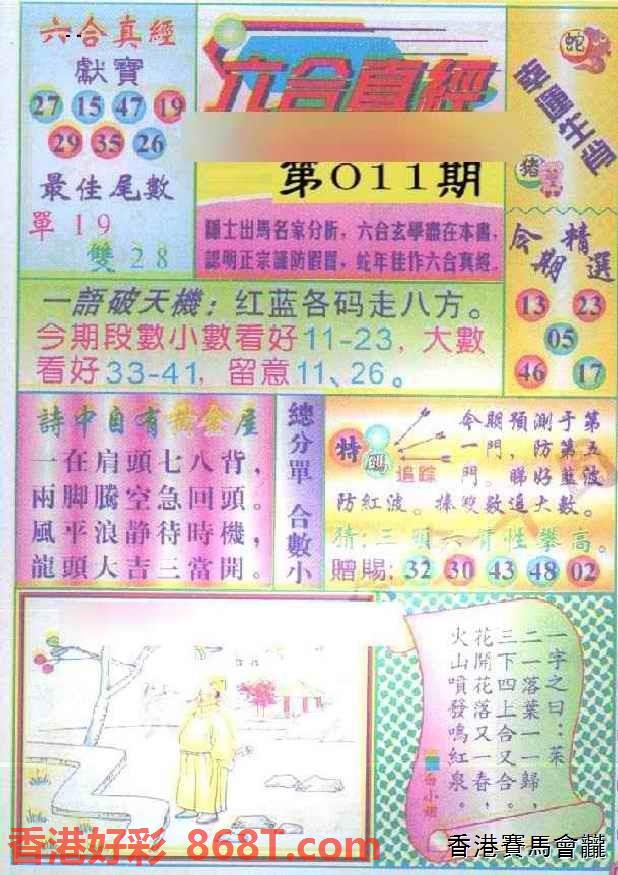 六合真經
獻寶
27 15 47 19
29 35 26
最佳尾數
單 19
雙 28
六合真經
第011期
隱士出馬名家分析，六合玄學盡在本書，
認明正宗謹防假冒，蛇年佳作六合真經。
蛇
猪
今期精選
13 23
05
46 17
一語破天機：红蓝各码走八方。
今期段數小數看好11-23，大數
看好33-41，留意11、26。
詩中自有黃金屋
一在肩頭七八背，
兩脚騰空急回頭。
風平浪静待時機，
龍頭大吉三當開。
總分單 合數小
特碼
追踪
今期預測于第
一門，防第五
門。睇好藍波
防紅波。揍双数追大數。
猜：三頭六臂性攀高。
贈賜：32 30 43 48 02
一字之曰：菜
二一落葉一一歸，
三下四上合又合。
花開花落又一春，
火山噴發鳴紅泉。
香港好彩 868T.com
香港賽馬會